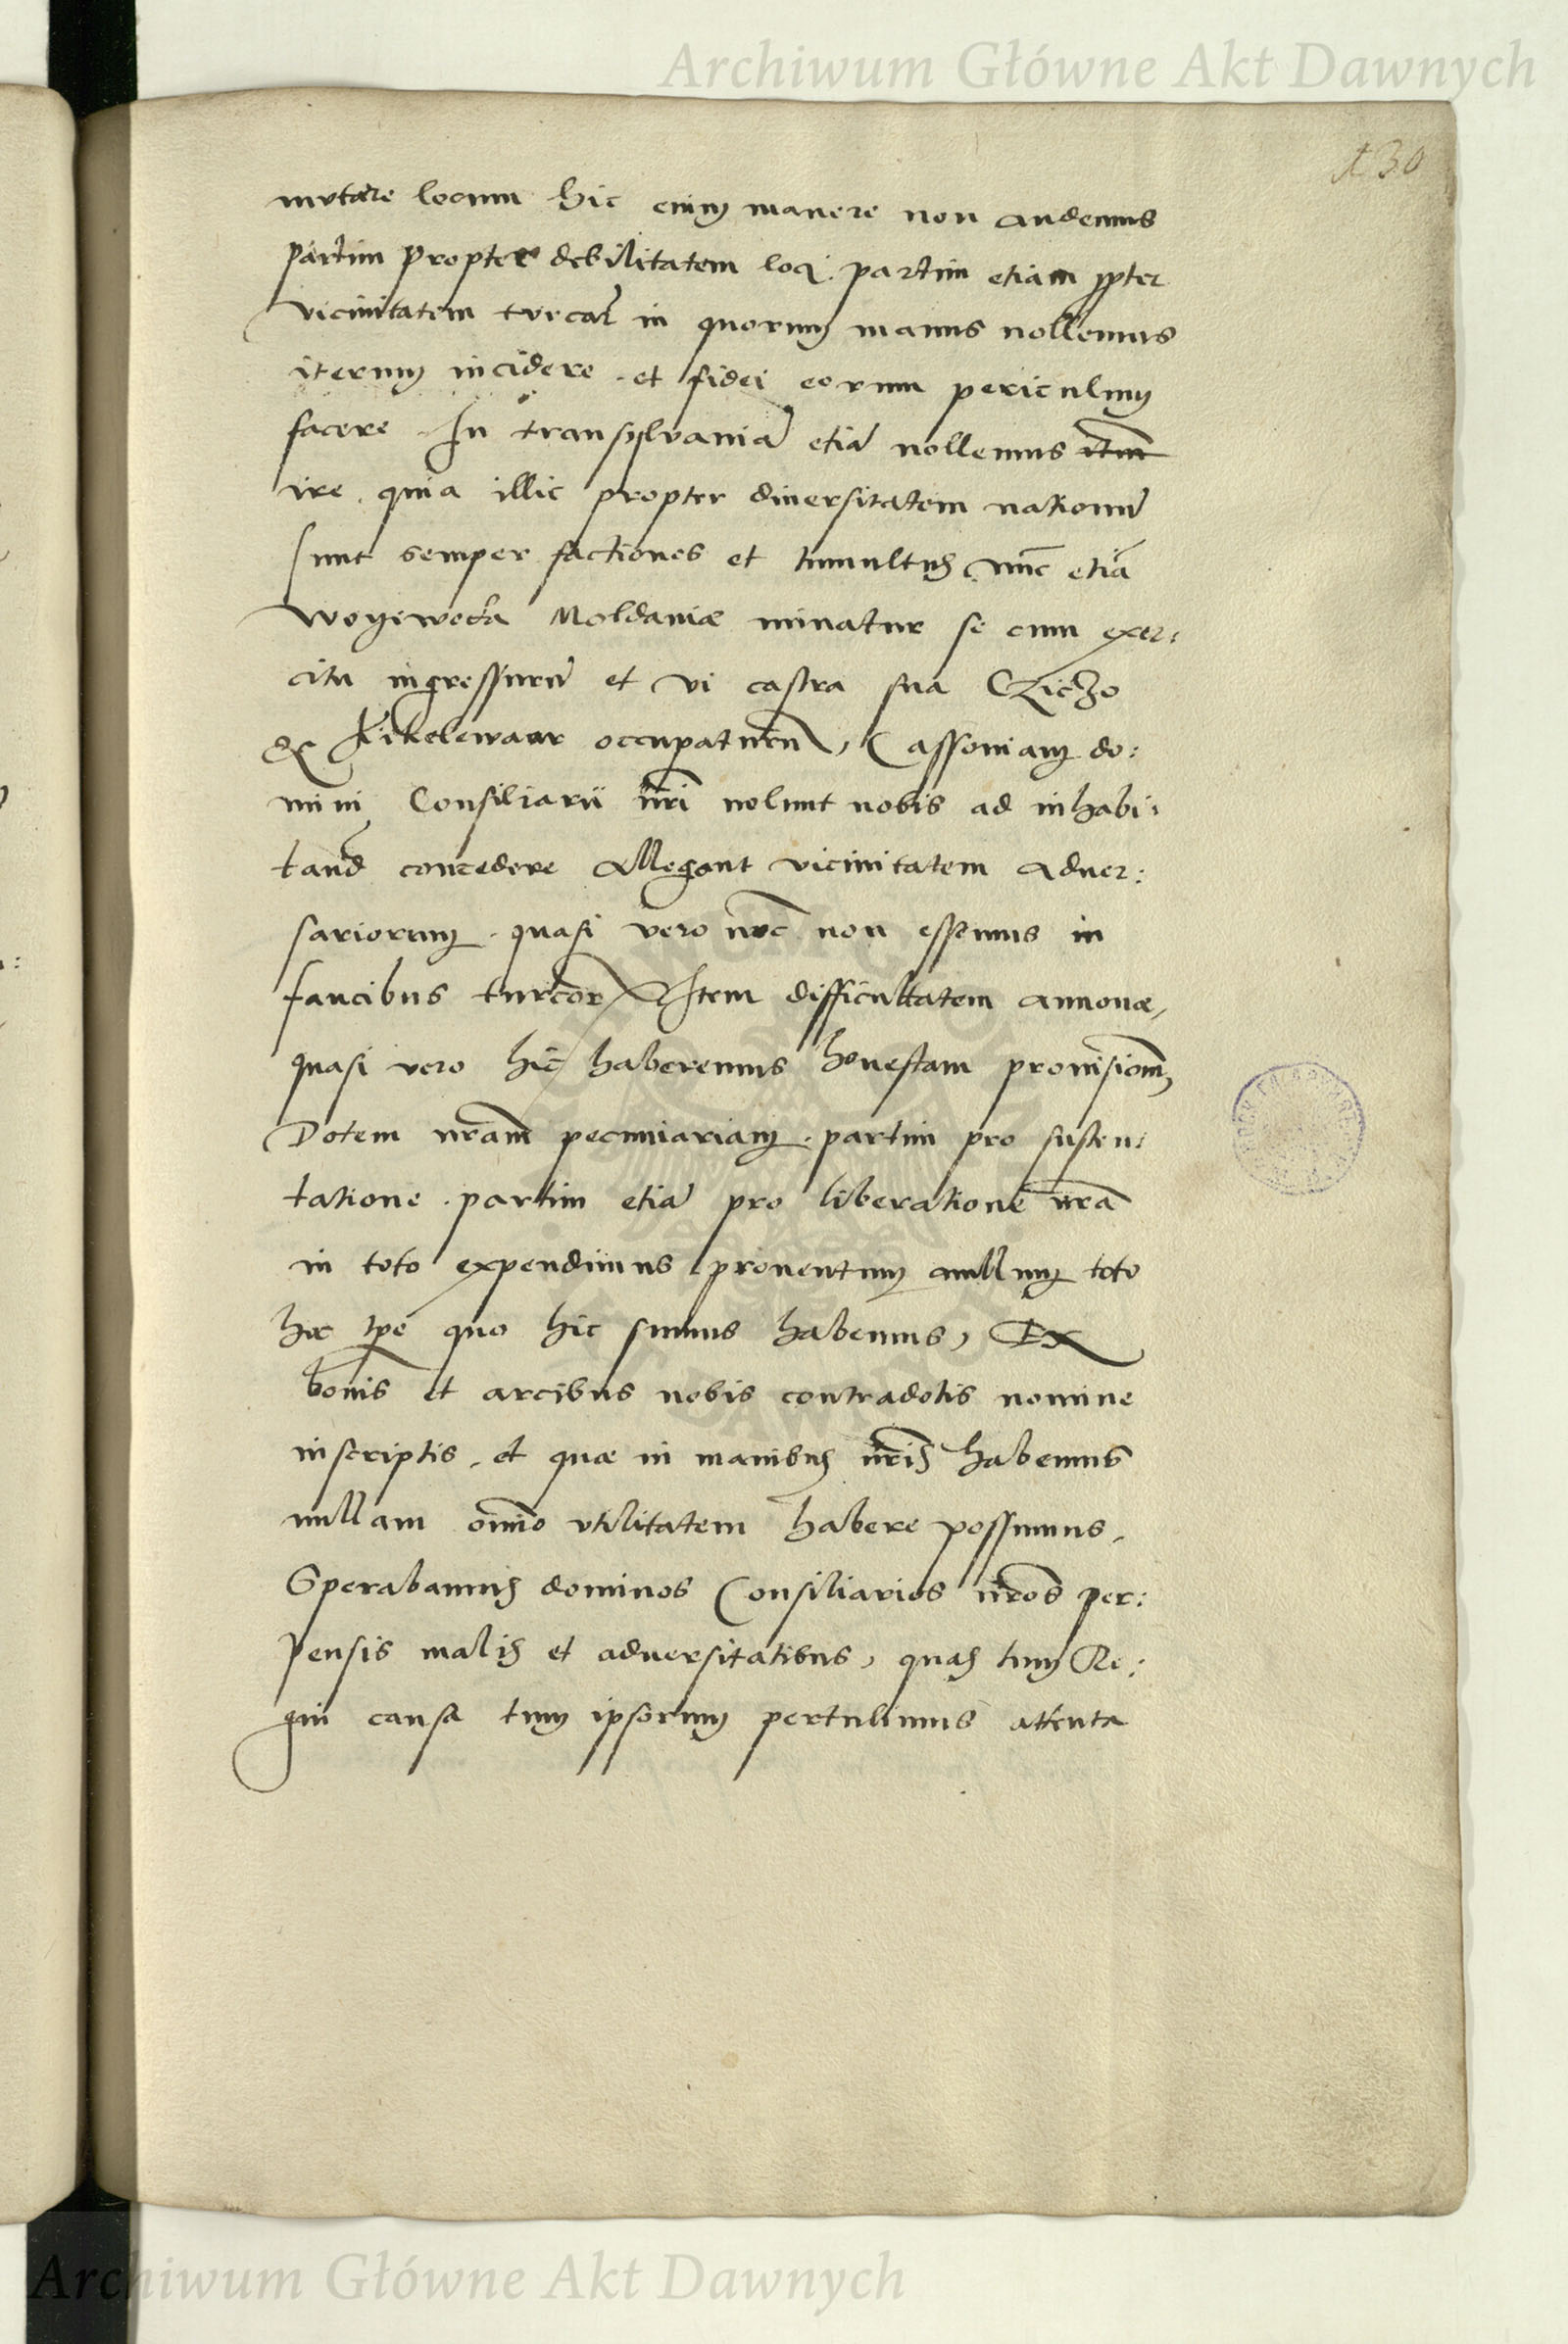 Archiwum Główne Akt Dawnych
130
mutare locum hic enim manere non audemus
partim propter debilitatem loci. partim etiam ppter
vicinitatem turcar in quorum manus nollemus
iterum incidere. et fidei eorum periculum
facere. In transsylvaniā etiā nollemus
ire. quia illic propter diuersitatem nationū
sunt semper factiones et tumultus, nūc etiā
woyewoda Moldaviæ minatur se cum exer:
citu ingressurū et vi castra sua Cziczo
& Kikelewaar occupaturū, Cassoviam do:
mini Consiliarii nri nolunt nobis ad inhabi:
tand concedere Allegant vicinitatem aduer:
sariorum. quasi vero nūc non essemus in
faucibus turcor, Item difficultatem annonæ,
quasi vero hic haberemus honestam prouisionē,
Dotem nram pecuniariam. partim pro susten:
tatione. partim etiā pro liberatione nrā
in toto expendimus prouentum nullum toto
hoc tpe quo hic sumus habemus, Ex
bonis et arcibus nobis contradotis nomine
inscriptis, et quæ in manibus nris habemus
nullam omīo utilitatem habere possumus,
Sperabamus dominos Consiliarios nros per:
pensis malis et aduersitatibus, quas tum Re:
gni causa tum ipsorum pertulimus attenta
Archiwum Główne Akt Dawnych